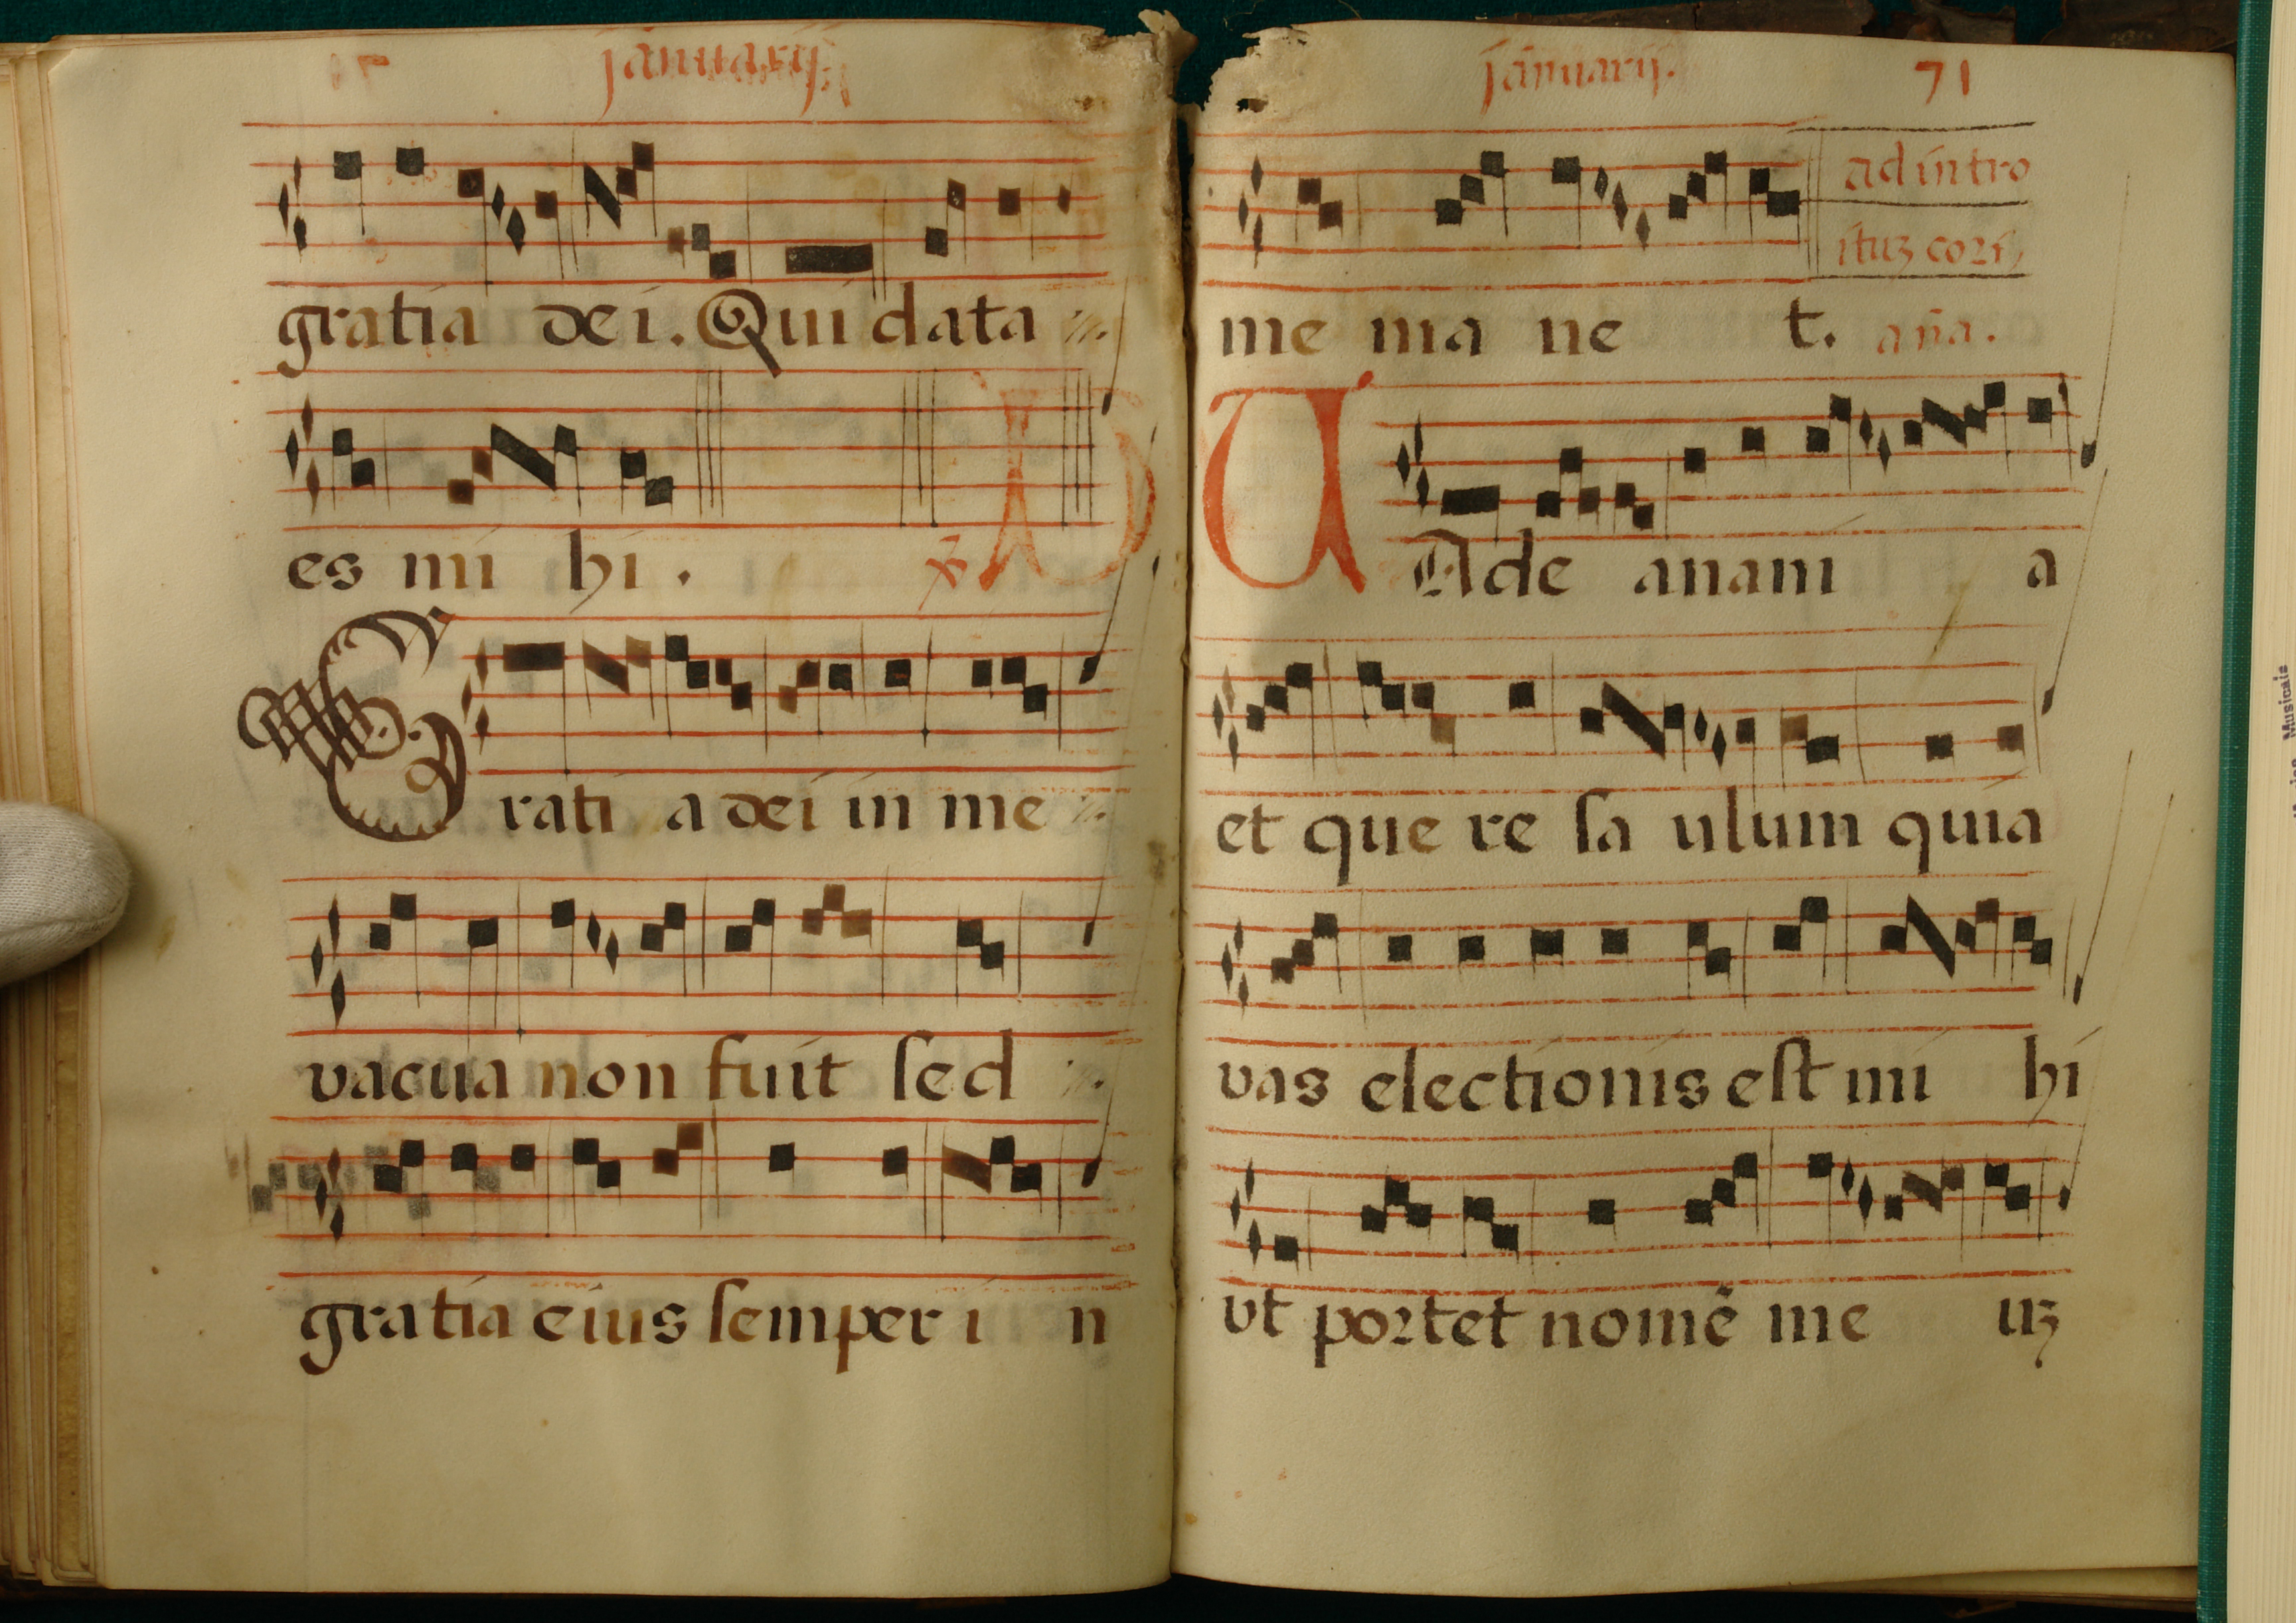 januarij.
gratia dei. Qui data
es mi hi.
Grati a dei in me
vacua non fuit sed
gratia eius semper i n
januarij. 71
ad intro
ituz cori,
me ma ne t. aña.
VAde anani a
et que re sa ulum quia
vas electionis est mi hi
vt portet nomẽ me uz
Musicais